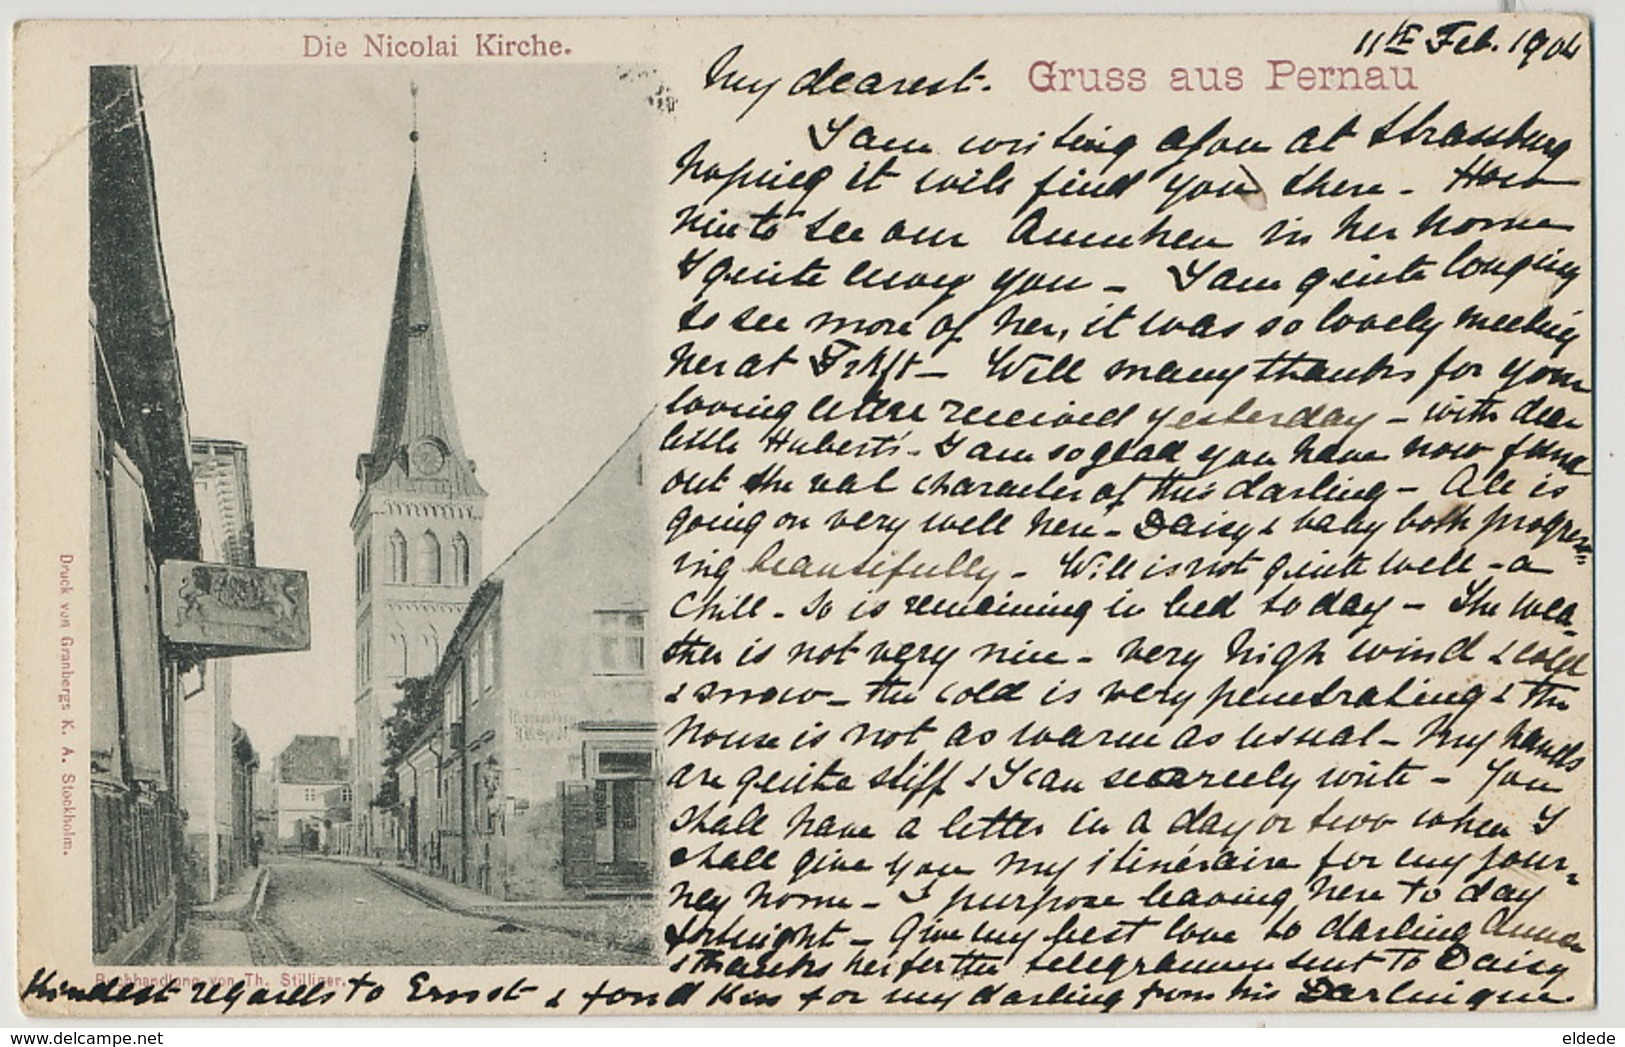 Die Nicolai Kirche.
Gruss aus Pernau
11th Feb. 1904
My dearest.
I am writing again at Strassburg
hoping it will find you there - How
nice to see our Annchen in her home
I quite envy you - I am quite longing
to see more of her, it was so lovely meeting
her at Frkft - Will many thanks for your
loving letter received yesterday - with dear
little Hubert's - I am so glad you have now found
out the real character of this darling - All is
going on very well here - Daisy & baby both progress-
ing beautifully - Will is not quite well - a
chill - so is remaining in bed to day - The wea-
ther is not very nice - very high wind & cold
& snow - the cold is very penetrating & the
house is not as warm as usual - My hands
are quite stiff & I can scarcely write - You
shall have a letter in a day or two when I
shall give you my itinéraire for my jour-
ney home - I purpose leaving here to day
fortnight - Give my best love to darling Anna
& thanks her for the telegramme sent to Daisy
Kindest regards to Ernst & fond kiss for my darling from his Darlingue
Druck von Granbergs K. A. Stockholm.
Buchhandlung von Th. Stilliger.
www.delcampe.net
eldede